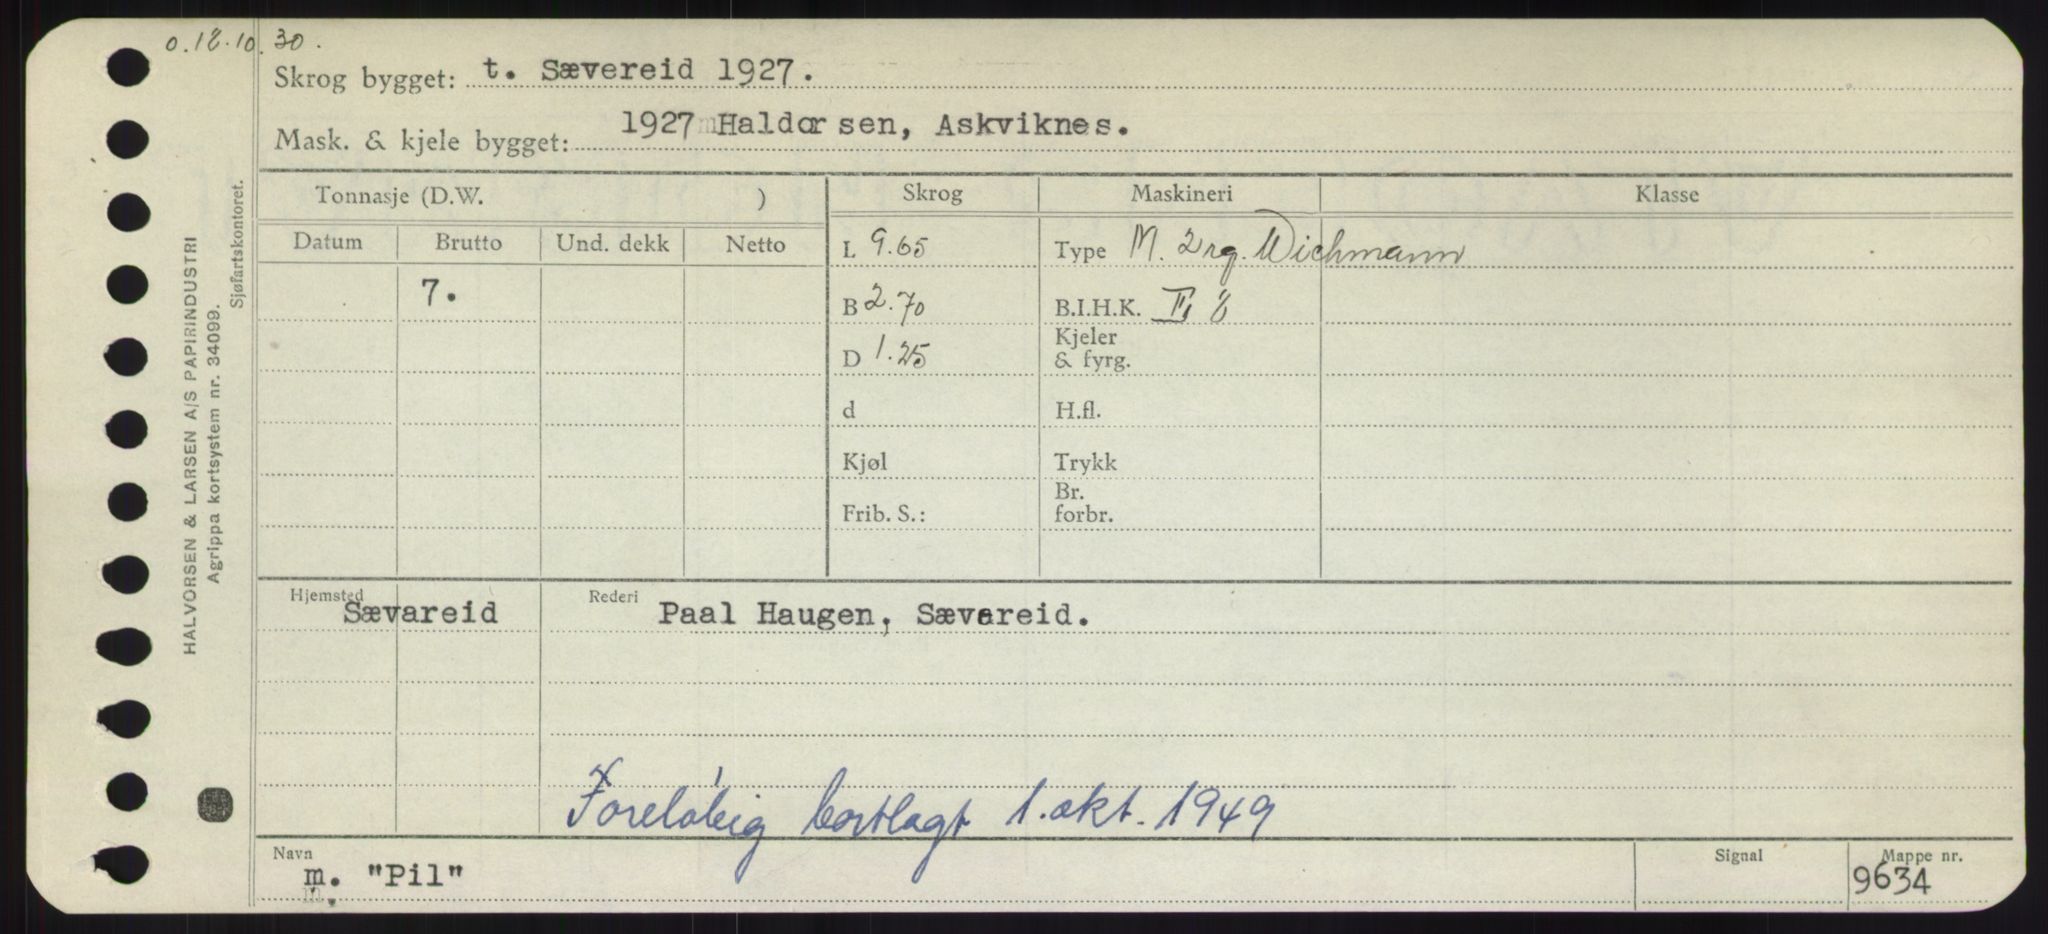 0.12.10.30.
Skrog bygget: t. Sævereid 1927.
Mask. & kjele bygget: 1927 Haldorsen, Askviknes.
Tonnasje (D.W. )
Skrog
Maskineri
Klasse
Datum Brutto Und. dekk Netto
L 9.65
Type M. 2rg. Wichmann
7.
B 2.70
B.I.H.K. II, 8
D 1.25
Kjeler
& fyrg.
d
H.fl.
Kjøl
Trykk
Frib. S.:
Br.
forbr.
Hjemsted Sævareid
Rederi Paal Haugen, Sævareid.
Foreløbig bortlagt 1. okt. 1949
Navn m. "Pil"
Signal
Mappe nr. 9634
HALVORSEN & LARSEN A/S PAPIRINDUSTRI
Agrippa kortsystem nr. 34099.
Sjøfartskontoret.